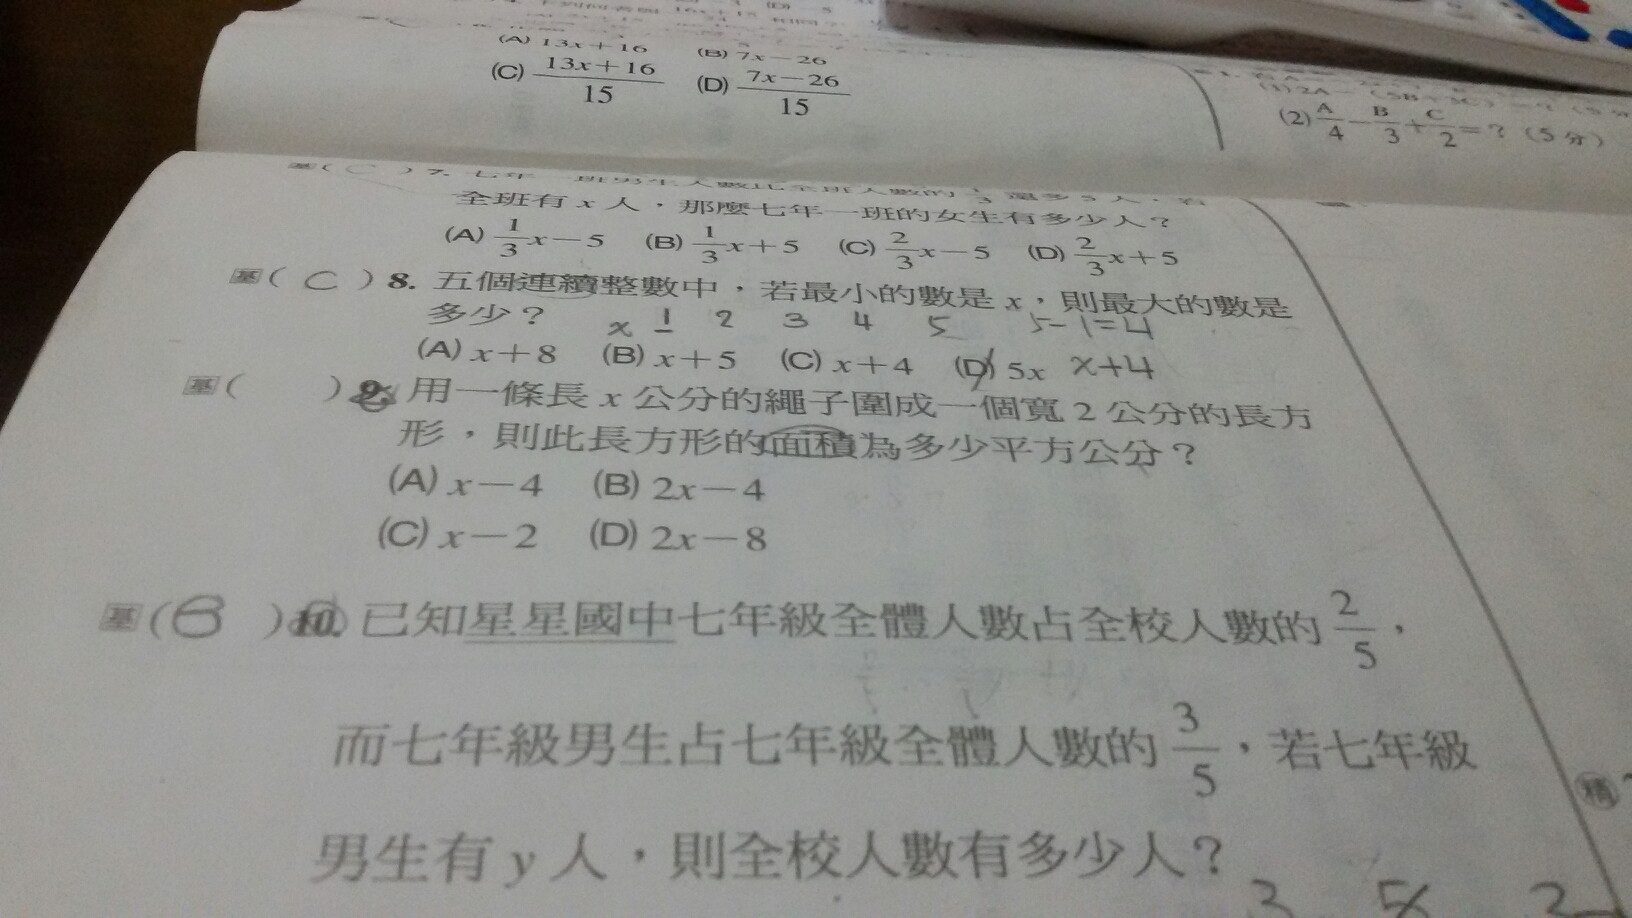 (A) 13x+16 (B) 7x-26
(C) 13x+16/15 (D) 7x-26/15
(2) A/4 - B/3 + C/2 =？（5分）
全班有 x 人，那麼七年一班的女生有多少人？
(A) 1/3x-5 (B) 1/3x+5 (C) 2/3x-5 (D) 2/3x+5
基( C ) 8. 五個連續整數中，若最小的數是 x，則最大的數是
多少？ x 1 2 3 4 5 5-1=4
(A) x+8 (B) x+5 (C) x+4 (D) 5x x+4
基( ) 9. 用一條長 x 公分的繩子圍成一個寬 2 公分的長方
形，則此長方形的面積為多少平方公分？
(A) x-4 (B) 2x-4
(C) x-2 (D) 2x-8
基( B ) 10. 已知星星國中七年級全體人數占全校人數的 2/5，
而七年級男生占七年級全體人數的 3/5，若七年級
男生有 y 人，則全校人數有多少人？